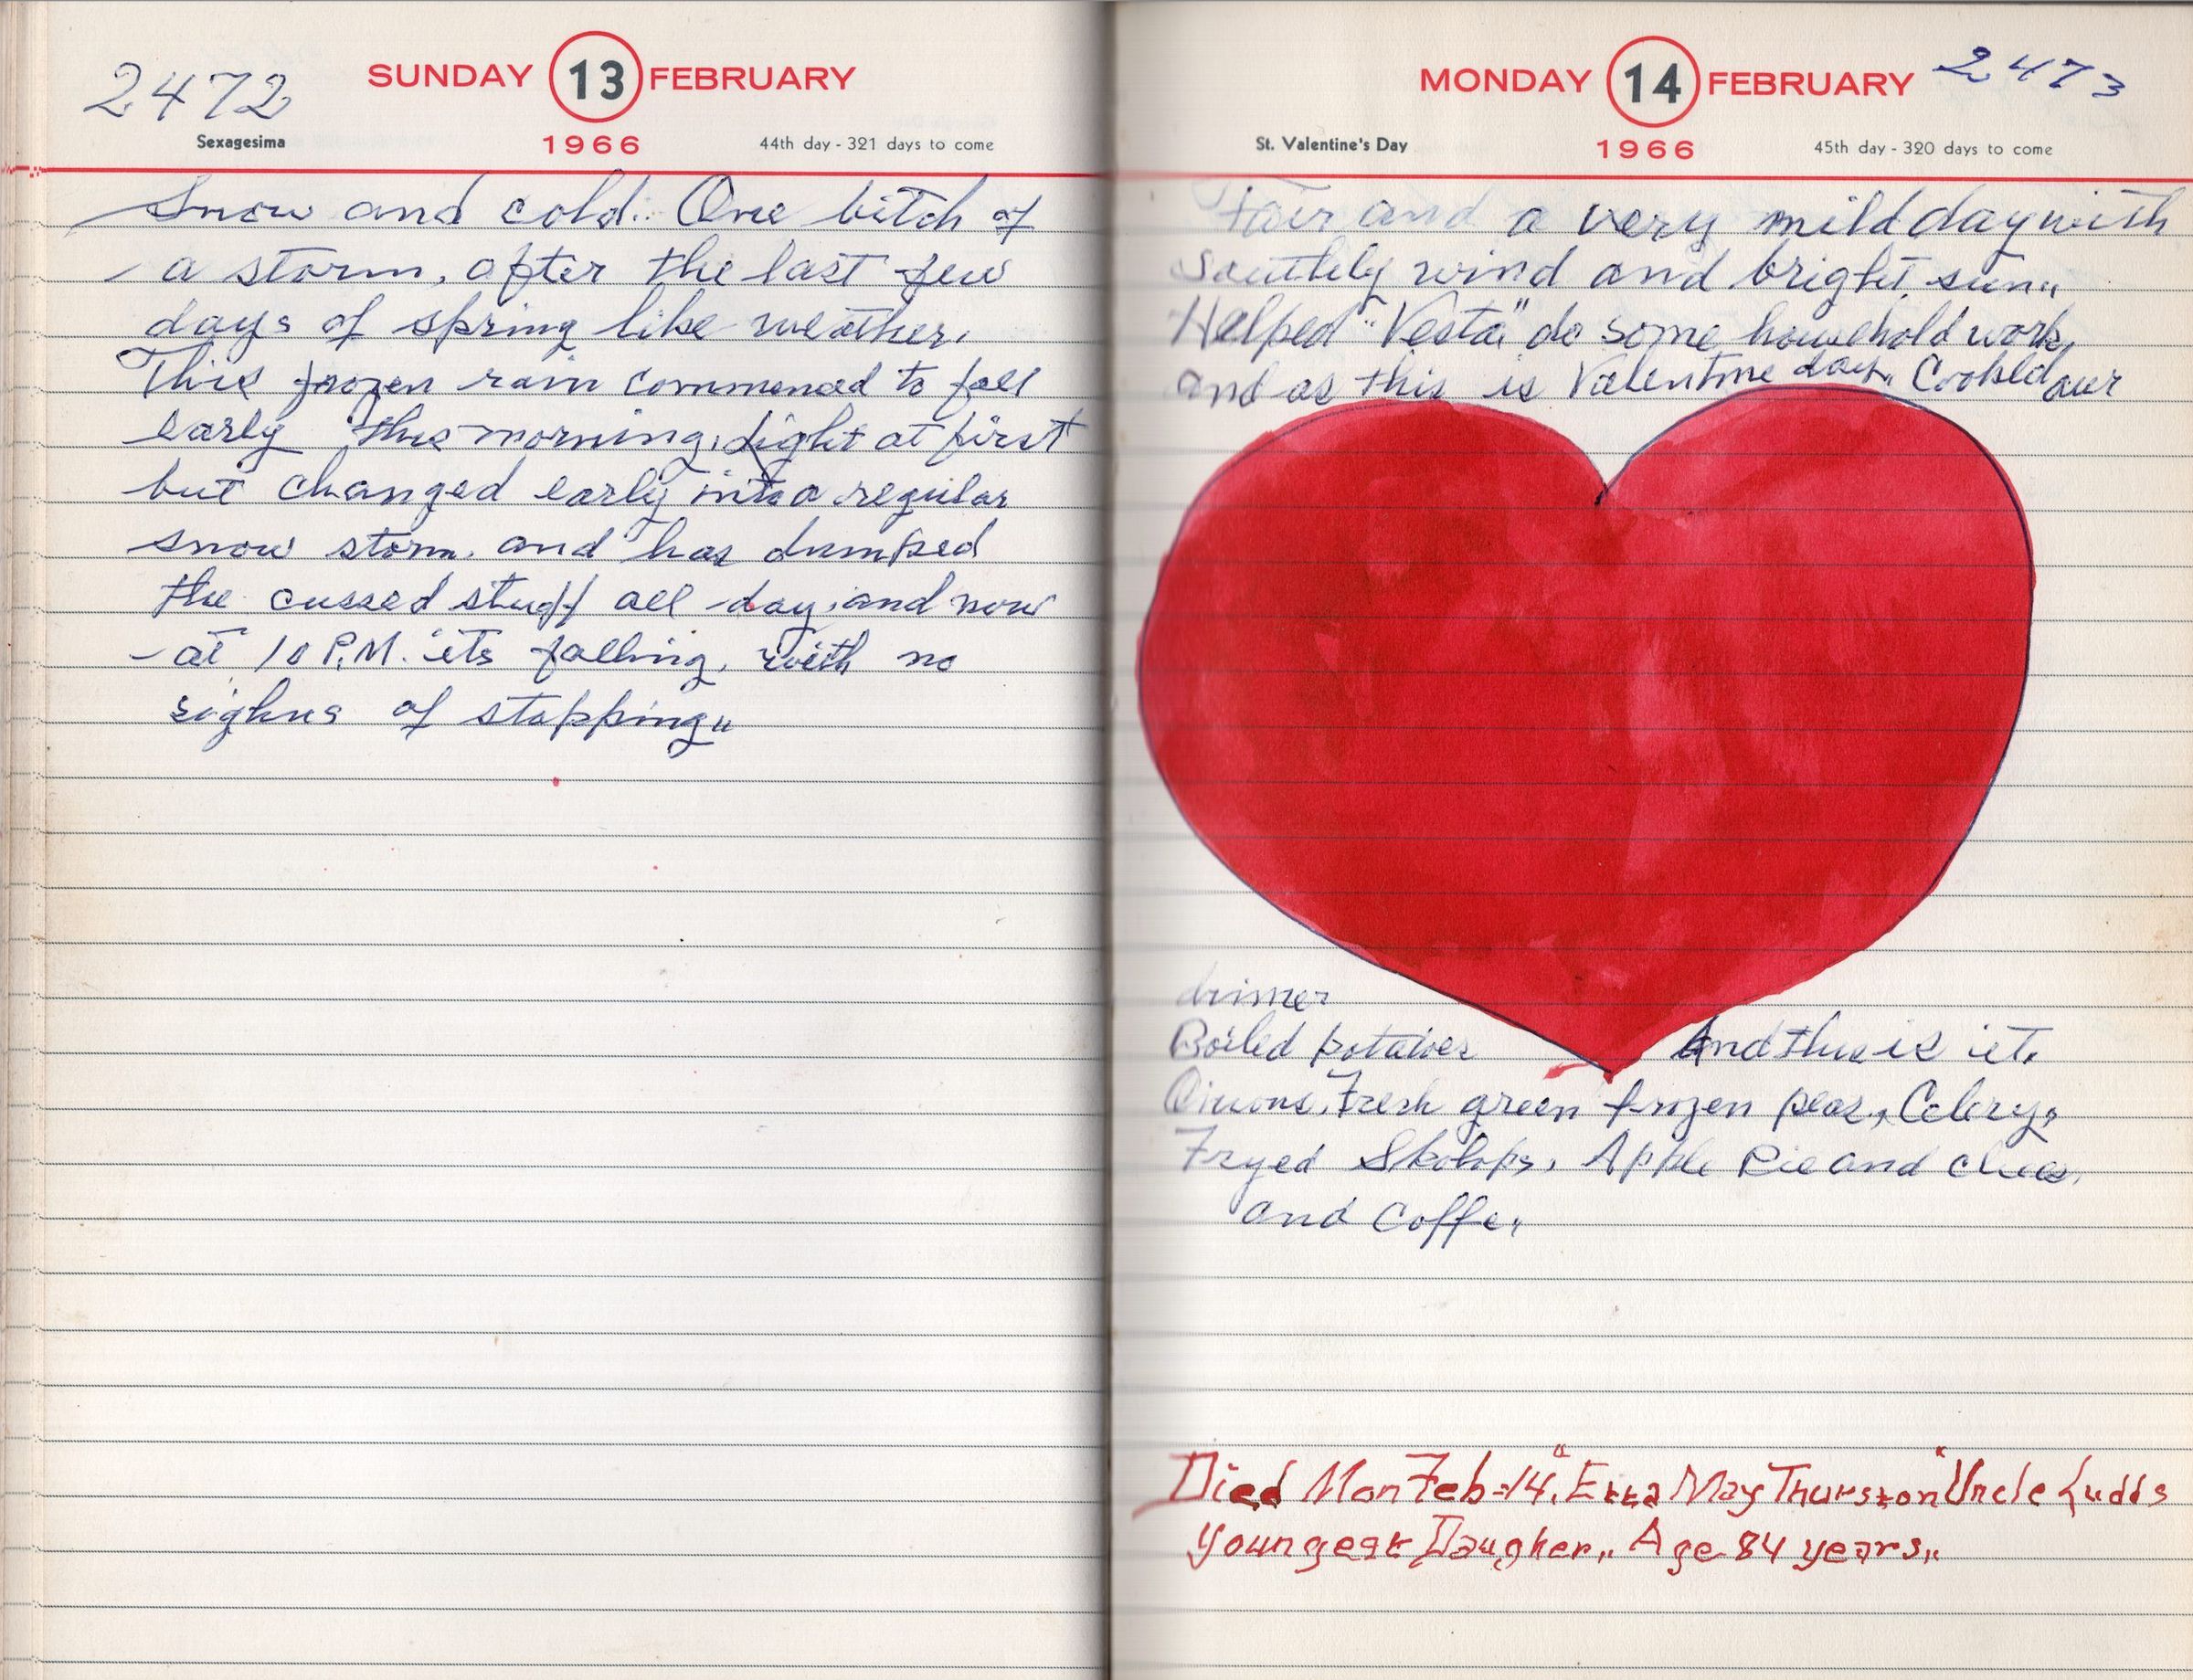 2472
SUNDAY 13 FEBRUARY
Sexagesima
1966
44th day - 321 days to come
Snow and cold.. One bitch of
a storm, after the last few
days of spring like weather,
This frozen rain commenced to fall
early this morning, light at first
but changed early into a regular
snow storm, and has dumped
the cussed stuff all day, and now
at 10 P.M. its falling, with no
sighns of stopping,,
MONDAY 14 FEBRUARY 2473
St. Valentine's Day
1966
45th day - 320 days to come
Fair and a very mild day with
southly wind and bright sun,,
Helped "Vesta" do some household work,
and as this is Valentine day, Cooked our
dinner
Boiled potatoes And this is it.
Onions, Fresh green frozen peas, Celery,
Fryed Skolops, Apple Pie and
and Coffe,
Died Mon Feb-14, " May Thurston" Uncle Ludds
Youngest Daugher,, Age 84 years,,